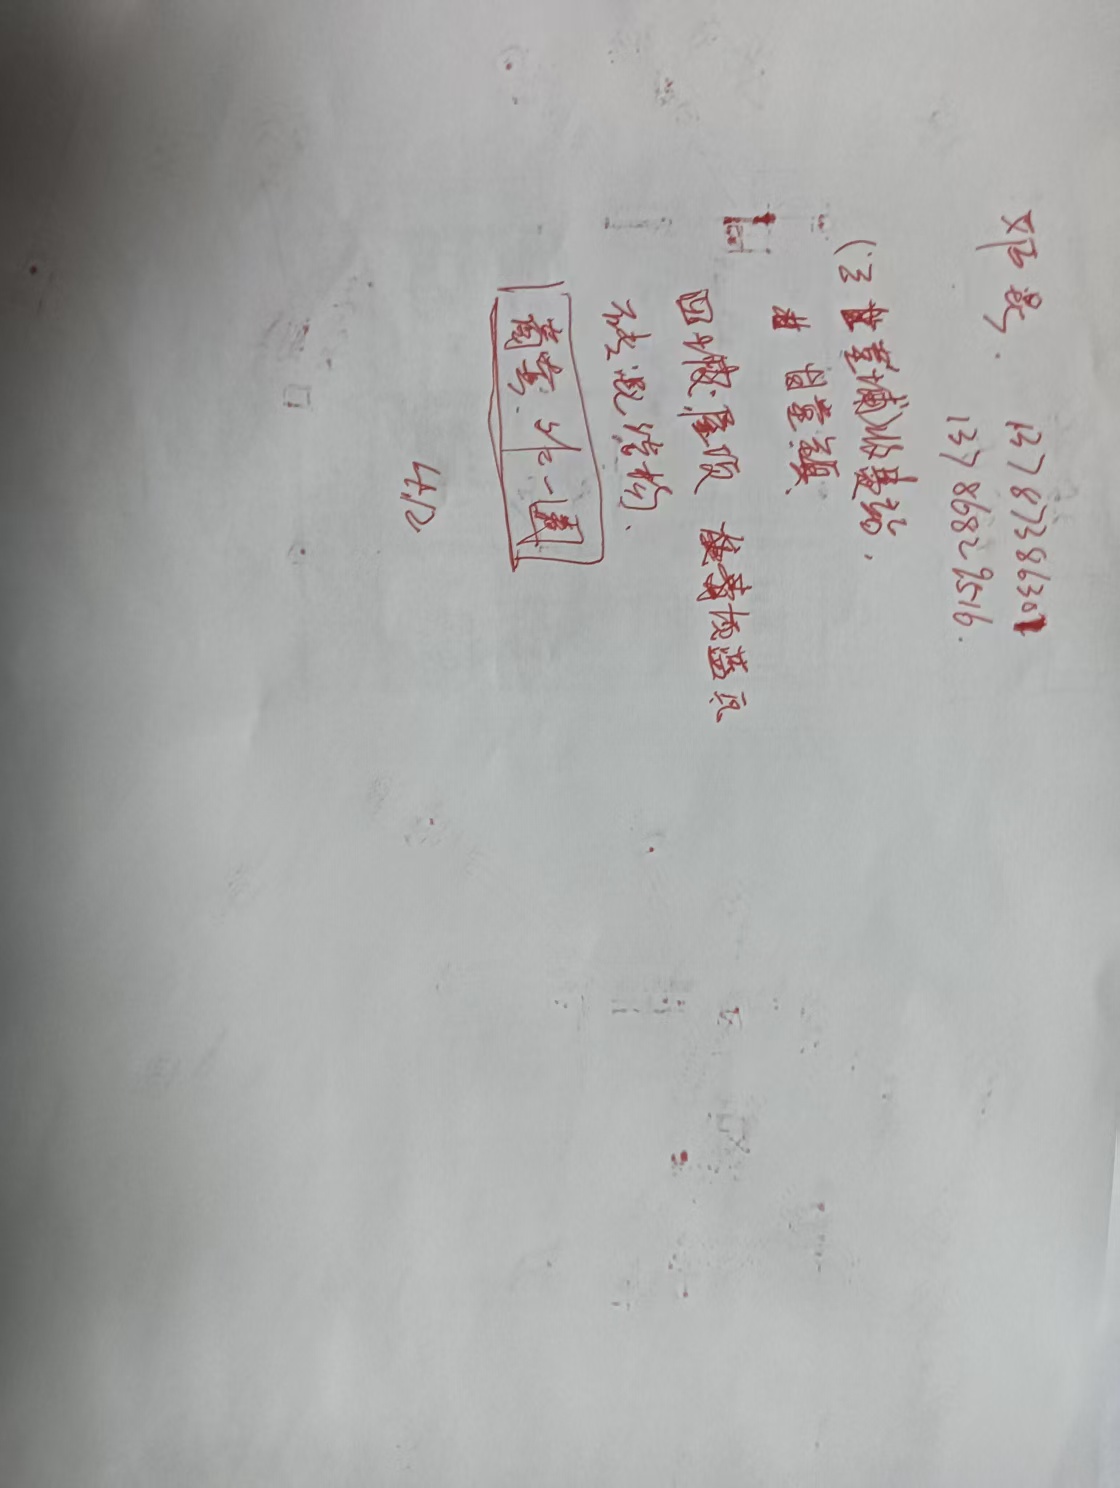 邓昆. 13787386301
13786829516.
(三 堂埔)收费站.
甘堂镇
四坡屋顶 顶蓝瓦
砖混结构.
窗套.外一圈
4.12